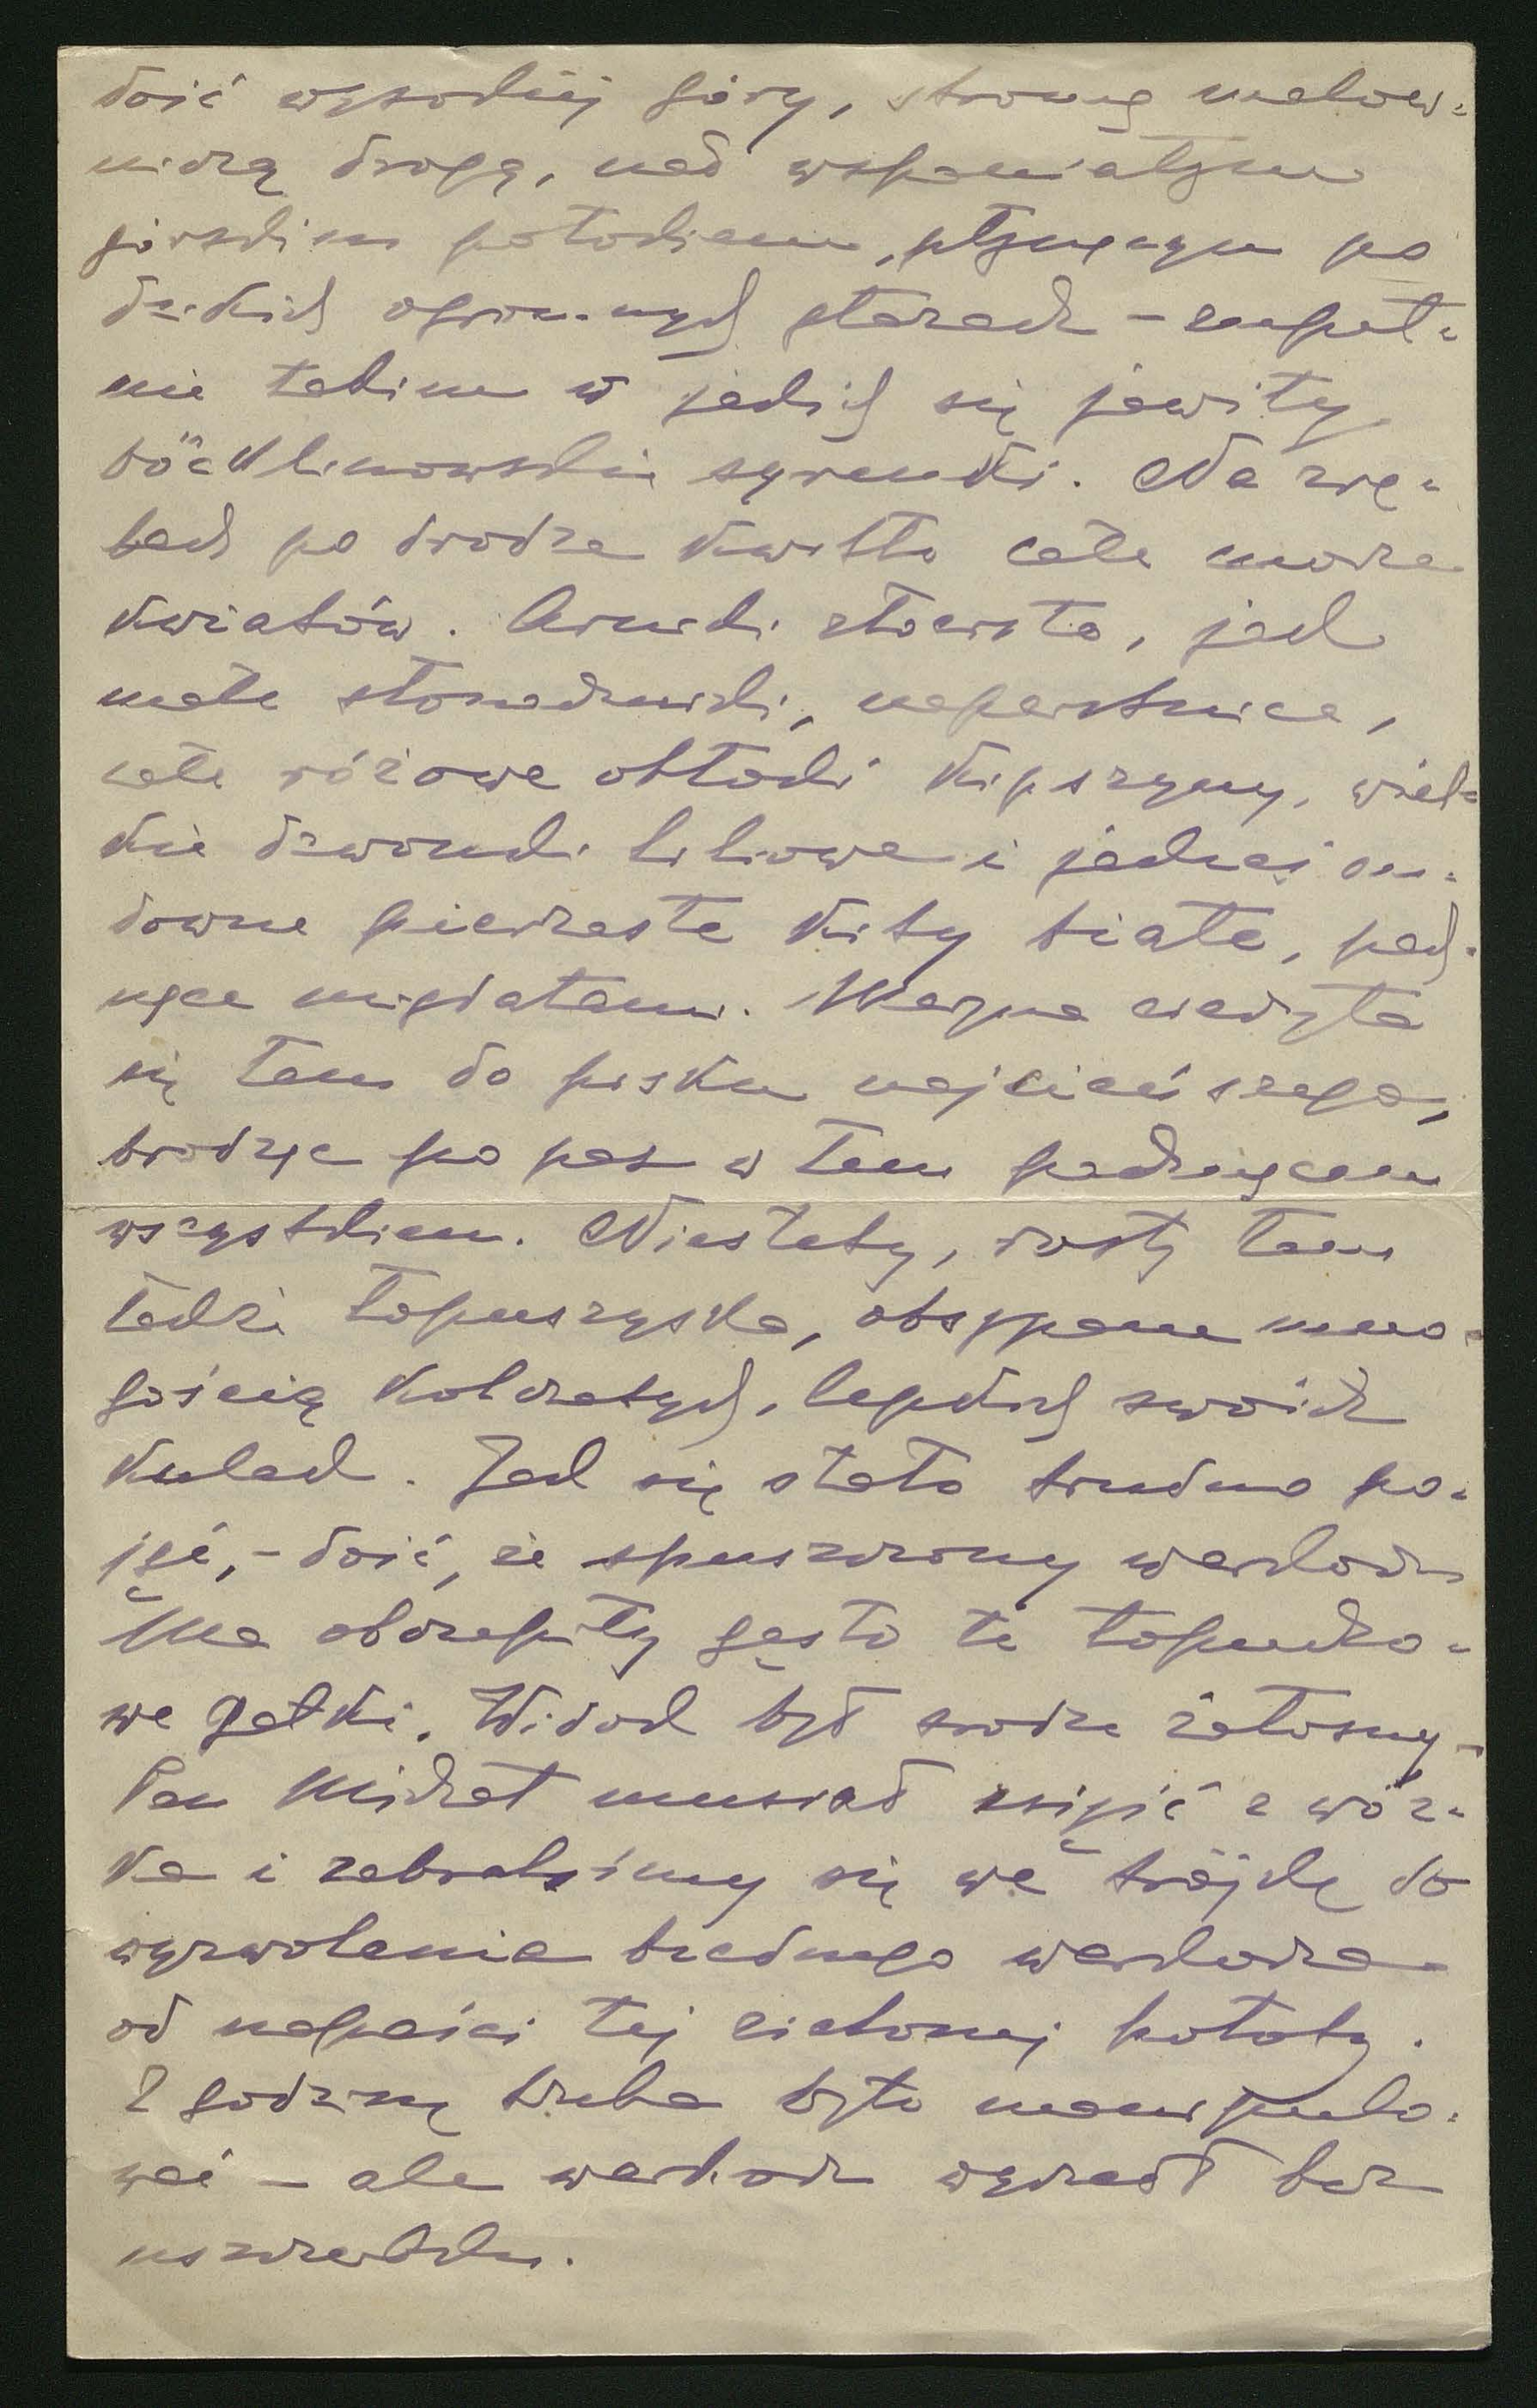 dość wysokiej góry, stromą malow=
niczą drogą, nad wspaniałym
górskim potokiem, płynącym po
dzikich ogromnych głazach – zupeł=
nie takim w jakich się jawiły
böcklinowskie syrenki. Na zrę=
bach po drodze kwitło całe morze
kwiatów. Arniki złociste, jak
małe słoneczniki, naparstnice,
całe różowe obłoki kipszyny, wiel=
kie dzwonki liliowe i jakieś cu=
downe pierzaste kity białe, pach=
nące migdałami. Magna cieszyła
się tam do pisku najcieńszego,
brodząc po pas w tem pachnącem
wszystkiem. Niestety, rosły tam
także łopuszyska, obsypane mno=
gością kolczatych, lepkich swoich
kulek. Jak się stało trudno po=
jąć, – dość, że spuszczony warkocz
Ma oblepiły gęsto te łopucho=
we gałki. Widok był srodze żałosny –
Pan Michał musiał zsiąść z wóz=
ka i zabraliśmy się we trójkę do
wyzwolenia biednego warkocza
od napaści tej zielonej hołoty.
Z godzinę trzeba było manipulo=
wać – ale warkocz wyszedł bez
uszczerbku.